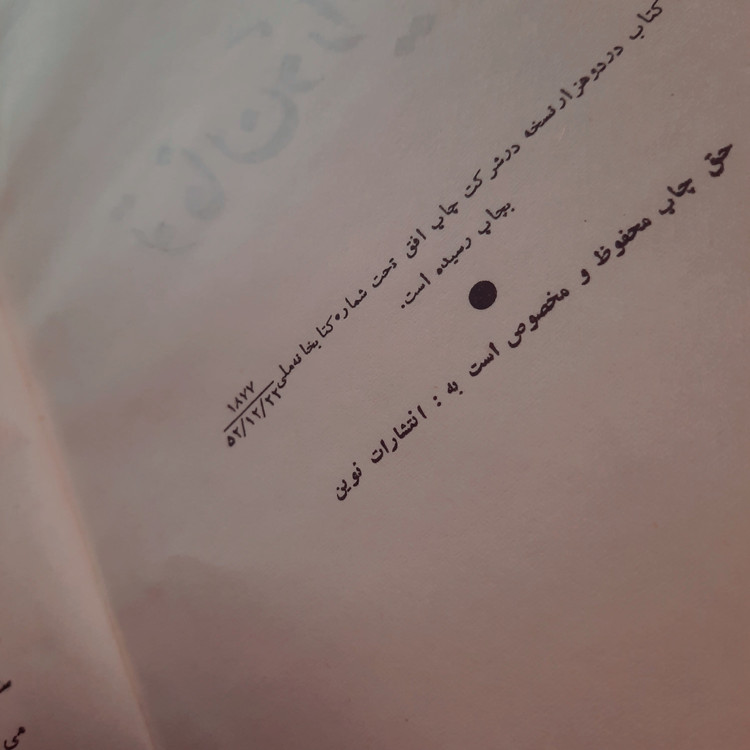 کتاب در دو هزار نسخه در شرکت چاپ افق تحت شماره کتابخانه ملی ۱۸۷۷
۵۲/۱۲/۲۲
بچاپ رسیده است.
حق چاپ محفوظ و مخصوص است به : انتشارات نوین
می